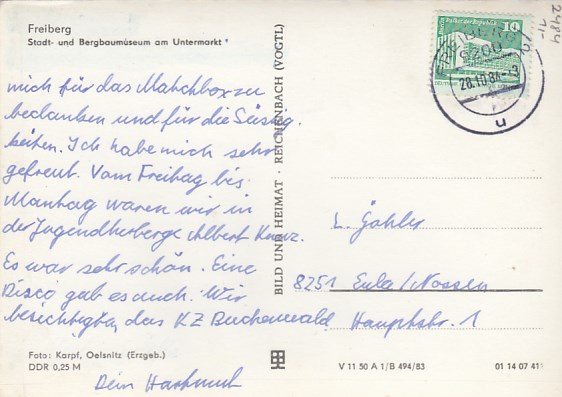 Freiberg
Stadt- und Bergbaumuseum am Untermarkt
mich für das Matchbox zu
bedanken und für die Süßig.
keiten. Ich habe mich sehr
gefreut. Vom Freitag bis
Montag waren wir in
der Jugendherberge Albert Kunz.
Es war sehr schön. Eine
Disco gab es auch. Wir
besichtigten das KZ Buchenwald
Dein Hartmut
Foto: Karpf, Oelsnitz (Erzgeb.)
DDR 0,25 M
BILD UND HEIMAT · REICHENBACH (VOGTL)
FREIBERG 1
9200
28.10.84
u
10
2484
1,-
L. Gohler
8251 Eula/Nossen
Hauptstr. 1
V 11 50 A 1/B 494/83
01 14 07 411